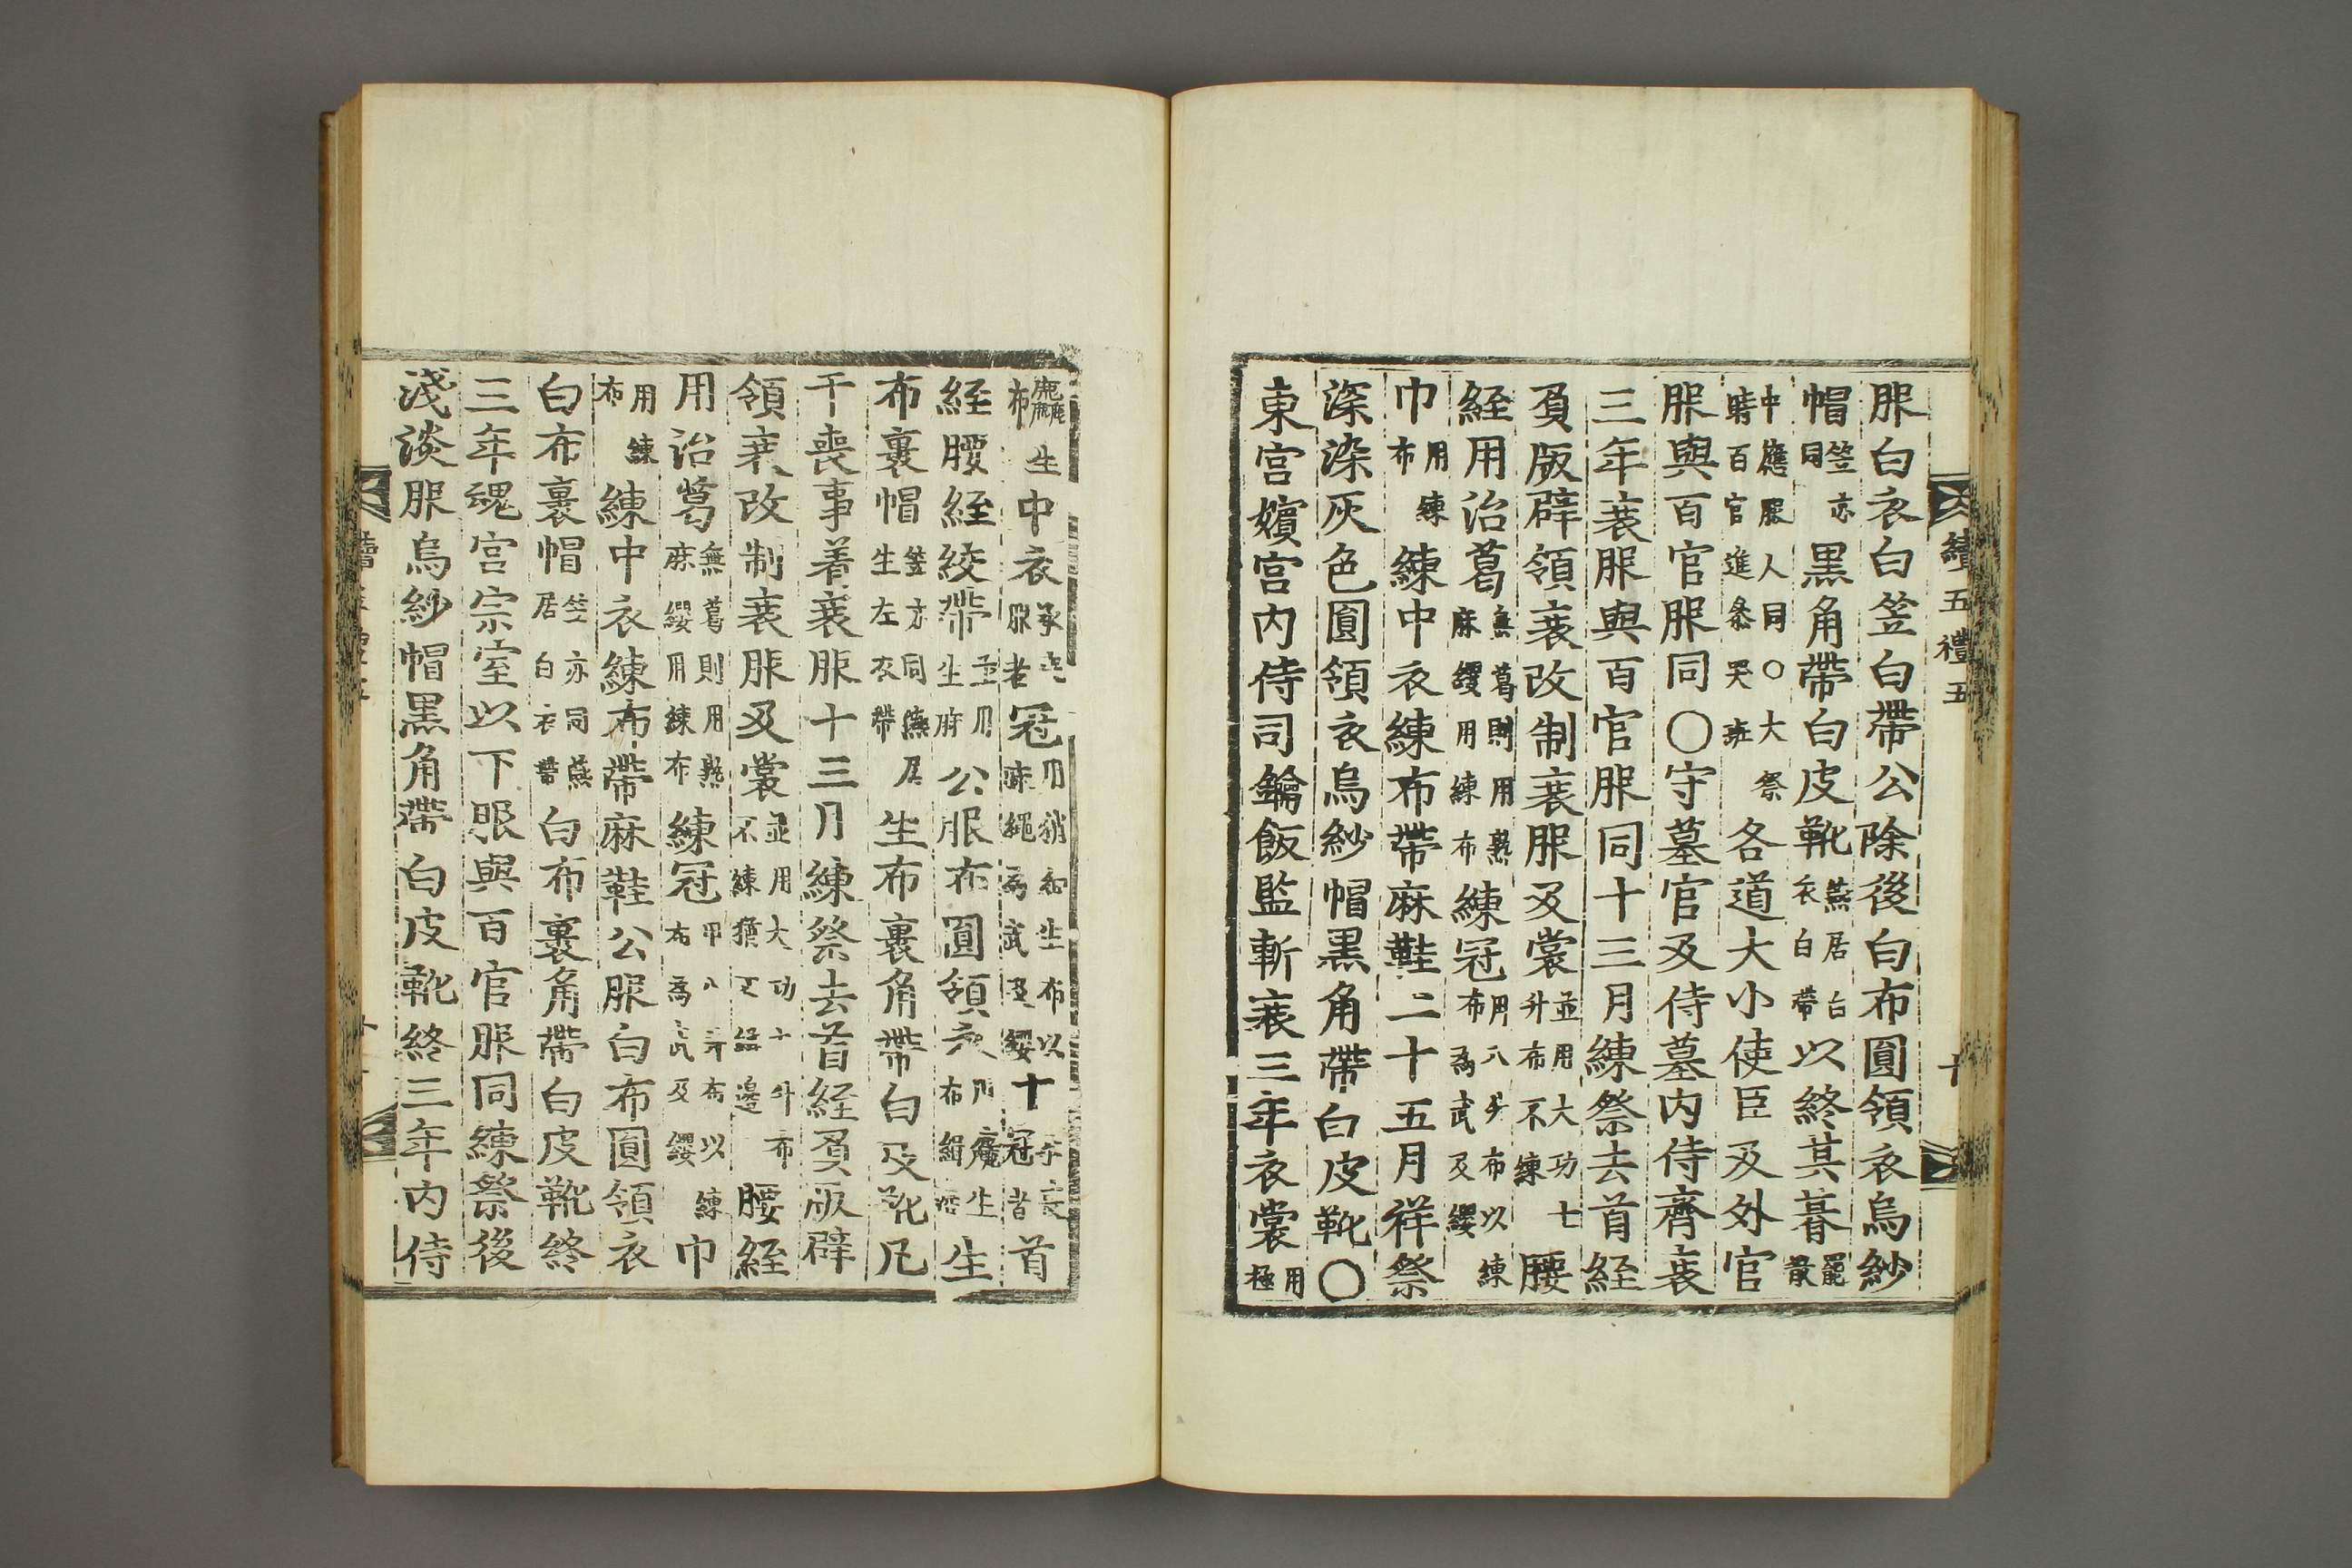 服白衣白笠白帶公除後白布圓領衣烏紗
帽笠亦同黑角帶白皮靴燕居白衣白帶以終其朞罷散
中應服人同○大祭時百官進參哭班各道大小使臣及外官
服與百官服同○守墓官及侍墓內侍齊衰
三年衰服與百官服同十三月練祭去首絰
負版辟領衰改制衰服及裳並用大功七升布不練腰
絰用治葛無葛則用熟麻纓用練布練冠用八升布以練布爲武及纓
巾用練布練中衣練布帶麻鞋二十五月祥祭
深染灰色圓領衣烏紗帽黑角帶白皮靴○
東宮嬪宮內侍司鑰飯監斬衰三年衣裳用極
續五禮五
十
麤生布中衣承衰服者冠用稍細生布以麻繩爲武及纓首
絰腰絰絞帶並用生麻公服布圓領衣用麤生布緝邊生
布裹帽笠亦同燕居生布衣帶生布裹角帶白皮靴凡
干喪事着衰服十三月練祭去首絰負版辟
領衰改制衰服及裳並用大功七升布不練猶不緝邊腰絰
用治葛無葛則用熟麻纓用練布練冠用八升布以練布爲武及纓巾
用練布練中衣練布帶麻鞋公服白布圓領衣
白布裹帽笠亦同燕居白衣帶白布裹角帶白皮靴終
三年魂宮宗室以下服與百官服同練祭後
淺淡服烏紗帽黑角帶白皮靴終三年內侍